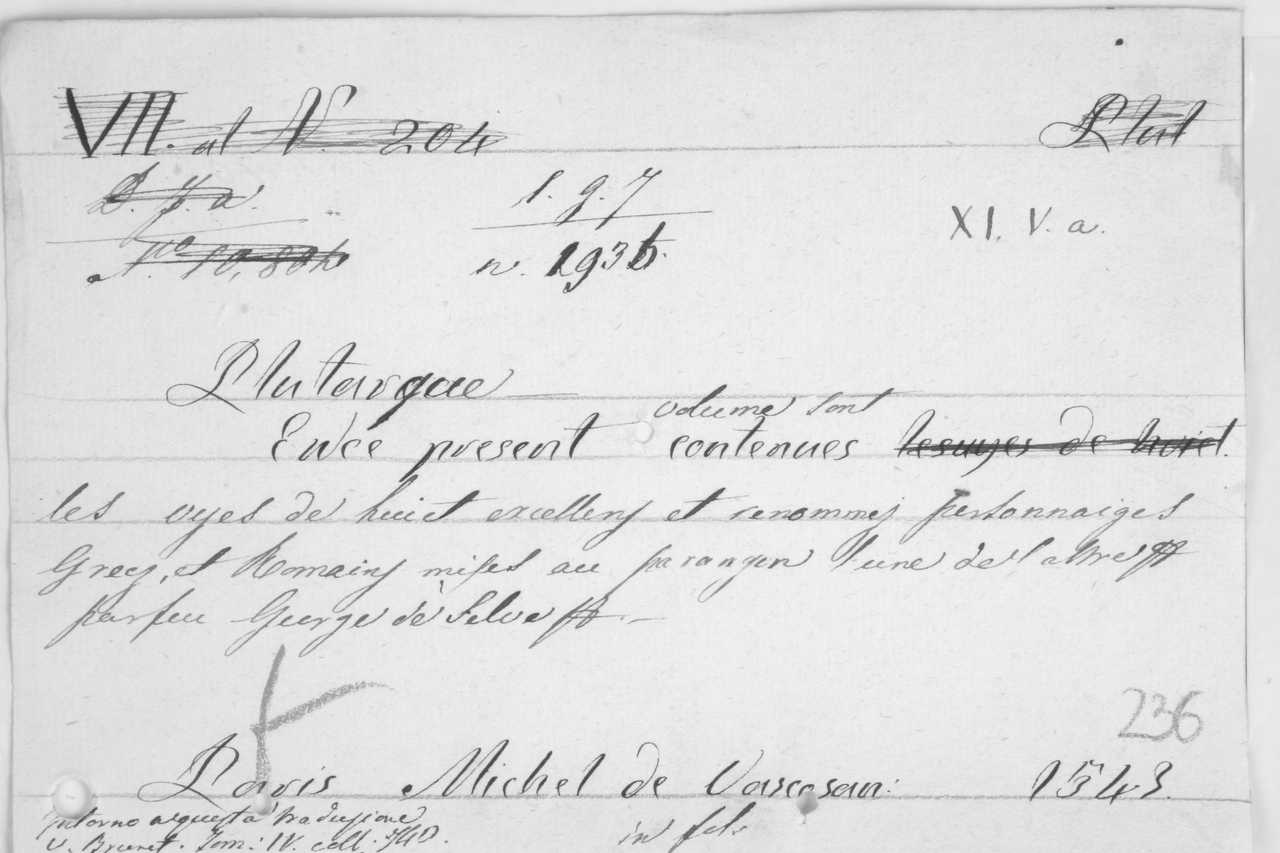 VII. al N. 204 Plut
D. J. a. 1. g. 7 XI. V. a.
N.º 10,804 n. 1936.
Plutarque
volume sont
En ce present contenues les vyes de huict.
les vyes de huict excellens et renommez personnaiges
Grecz, et Romains mises au parangon l'une de l'altre
par feu George de Selve
236
Paris Michel de Vascosan: 1543.
intorno a questa traduzione in fol.
v. Brunet. Tom: IV. coll.